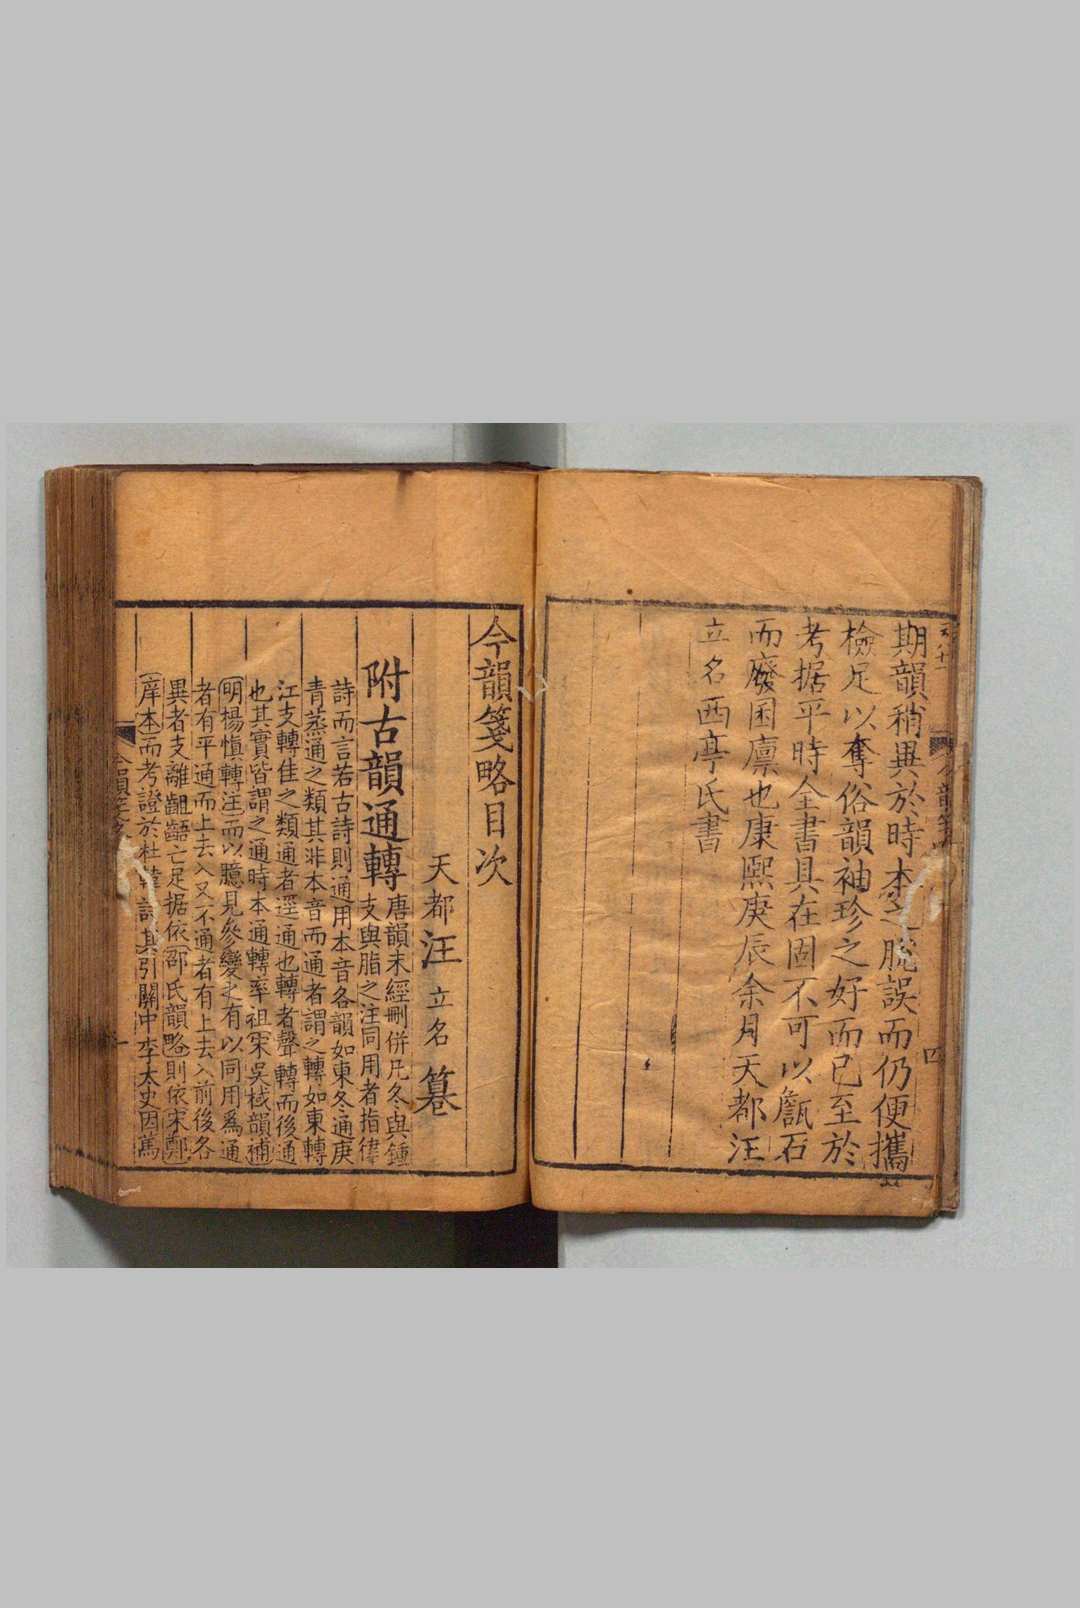 期韻稍異於時本之脫誤而仍便攜
檢足以奪俗韻袖珍之好而已至於
考据平時全書具在固不可以甔石
而廢囷廩也康熙庚辰余月天都汪
立名西亭氏書
四
今韻箋略目次
天都汪立名纂
附古韻通轉
唐韻未經刪併凡冬與鍾
支與脂之注同用者指律
詩而言若古詩則通用本音各韻如東冬通庚
青蒸通之類其非本音而通者謂之轉如東轉
江支轉佳之類通者逕通也轉者聲轉而後通
也其實皆謂之通時本通轉率祖宋吳棫韻補
明楊慎轉注而以臆見參變之有以同用爲通
者有平通而上去入又不通者有上去入前後各
異者支離齟齬亡足据依邵氏韻略則依宋鄭
庠本而考證於杜韓詩其引關中李太史因篤